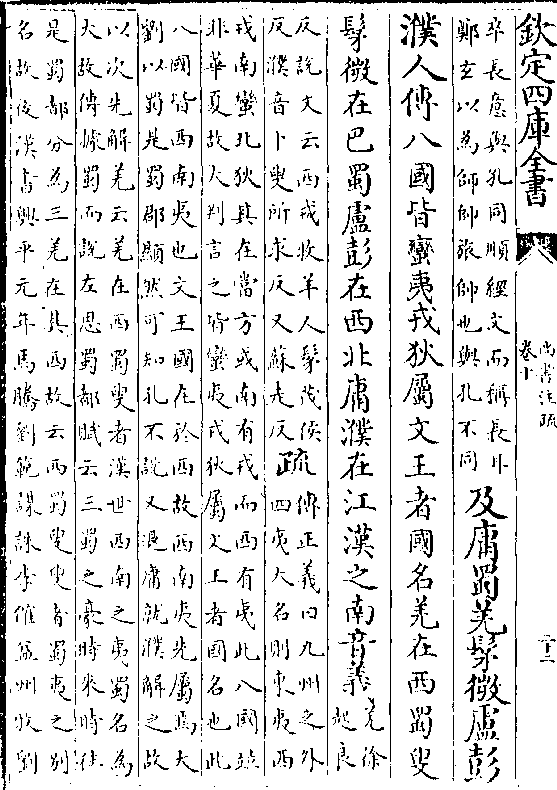 欽定四庫全書
尚書注疏
卷十
二十二
卒長意與孔同順經文而稱長耳
鄭玄以為師帥旅帥也與孔不同
及庸蜀羌髳微盧彭
濮人傳八國皆蠻夷戎狄屬文王者國名羌在西蜀叟
髳微在巴蜀盧彭在西北庸濮在江漢之南音義羌徐起良
反說文云西戎牧羊人髳茂侯
反濮音卜叟所求反又蘇走反
疏傳正義曰九州之外
四夷大名則東夷西
戎南蠻北狄其在當方或南有戎而西有夷此八國並
非華夏故大判言之皆蠻夷戎狄屬文王者國名也此
八國皆西南夷也文王國在於西故西南夷先屬焉大
劉以蜀是蜀郡顯然可知孔不說又退庸就濮解之故
以次先解羌云羌在西蜀叟者漢世西南之夷蜀名為
大故傳據蜀而說左思蜀都賦云三蜀之豪時來時往
是蜀都分為三羌在其西故云西蜀叟叟者蜀夷之別
名故後漢書興平元年馬騰劉範謀誅李傕益州牧劉